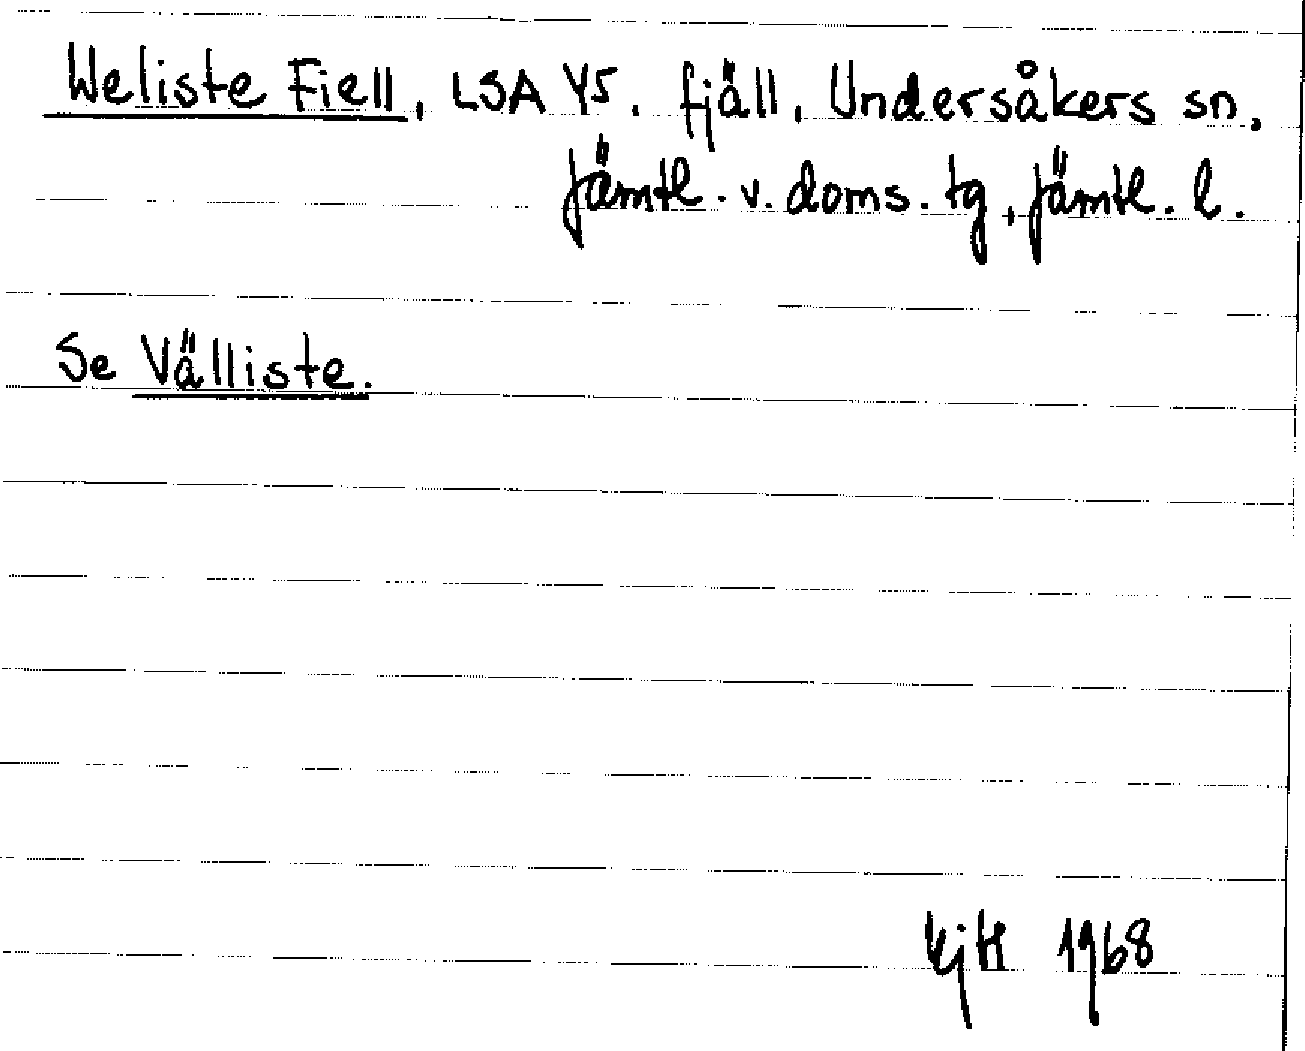 Weliste Fiell, LSA Y5. fjäll, Undersåkers sn.
Jämtl. v. doms. tg, Jämtl. l.
Se Välliste.
KjH 1968